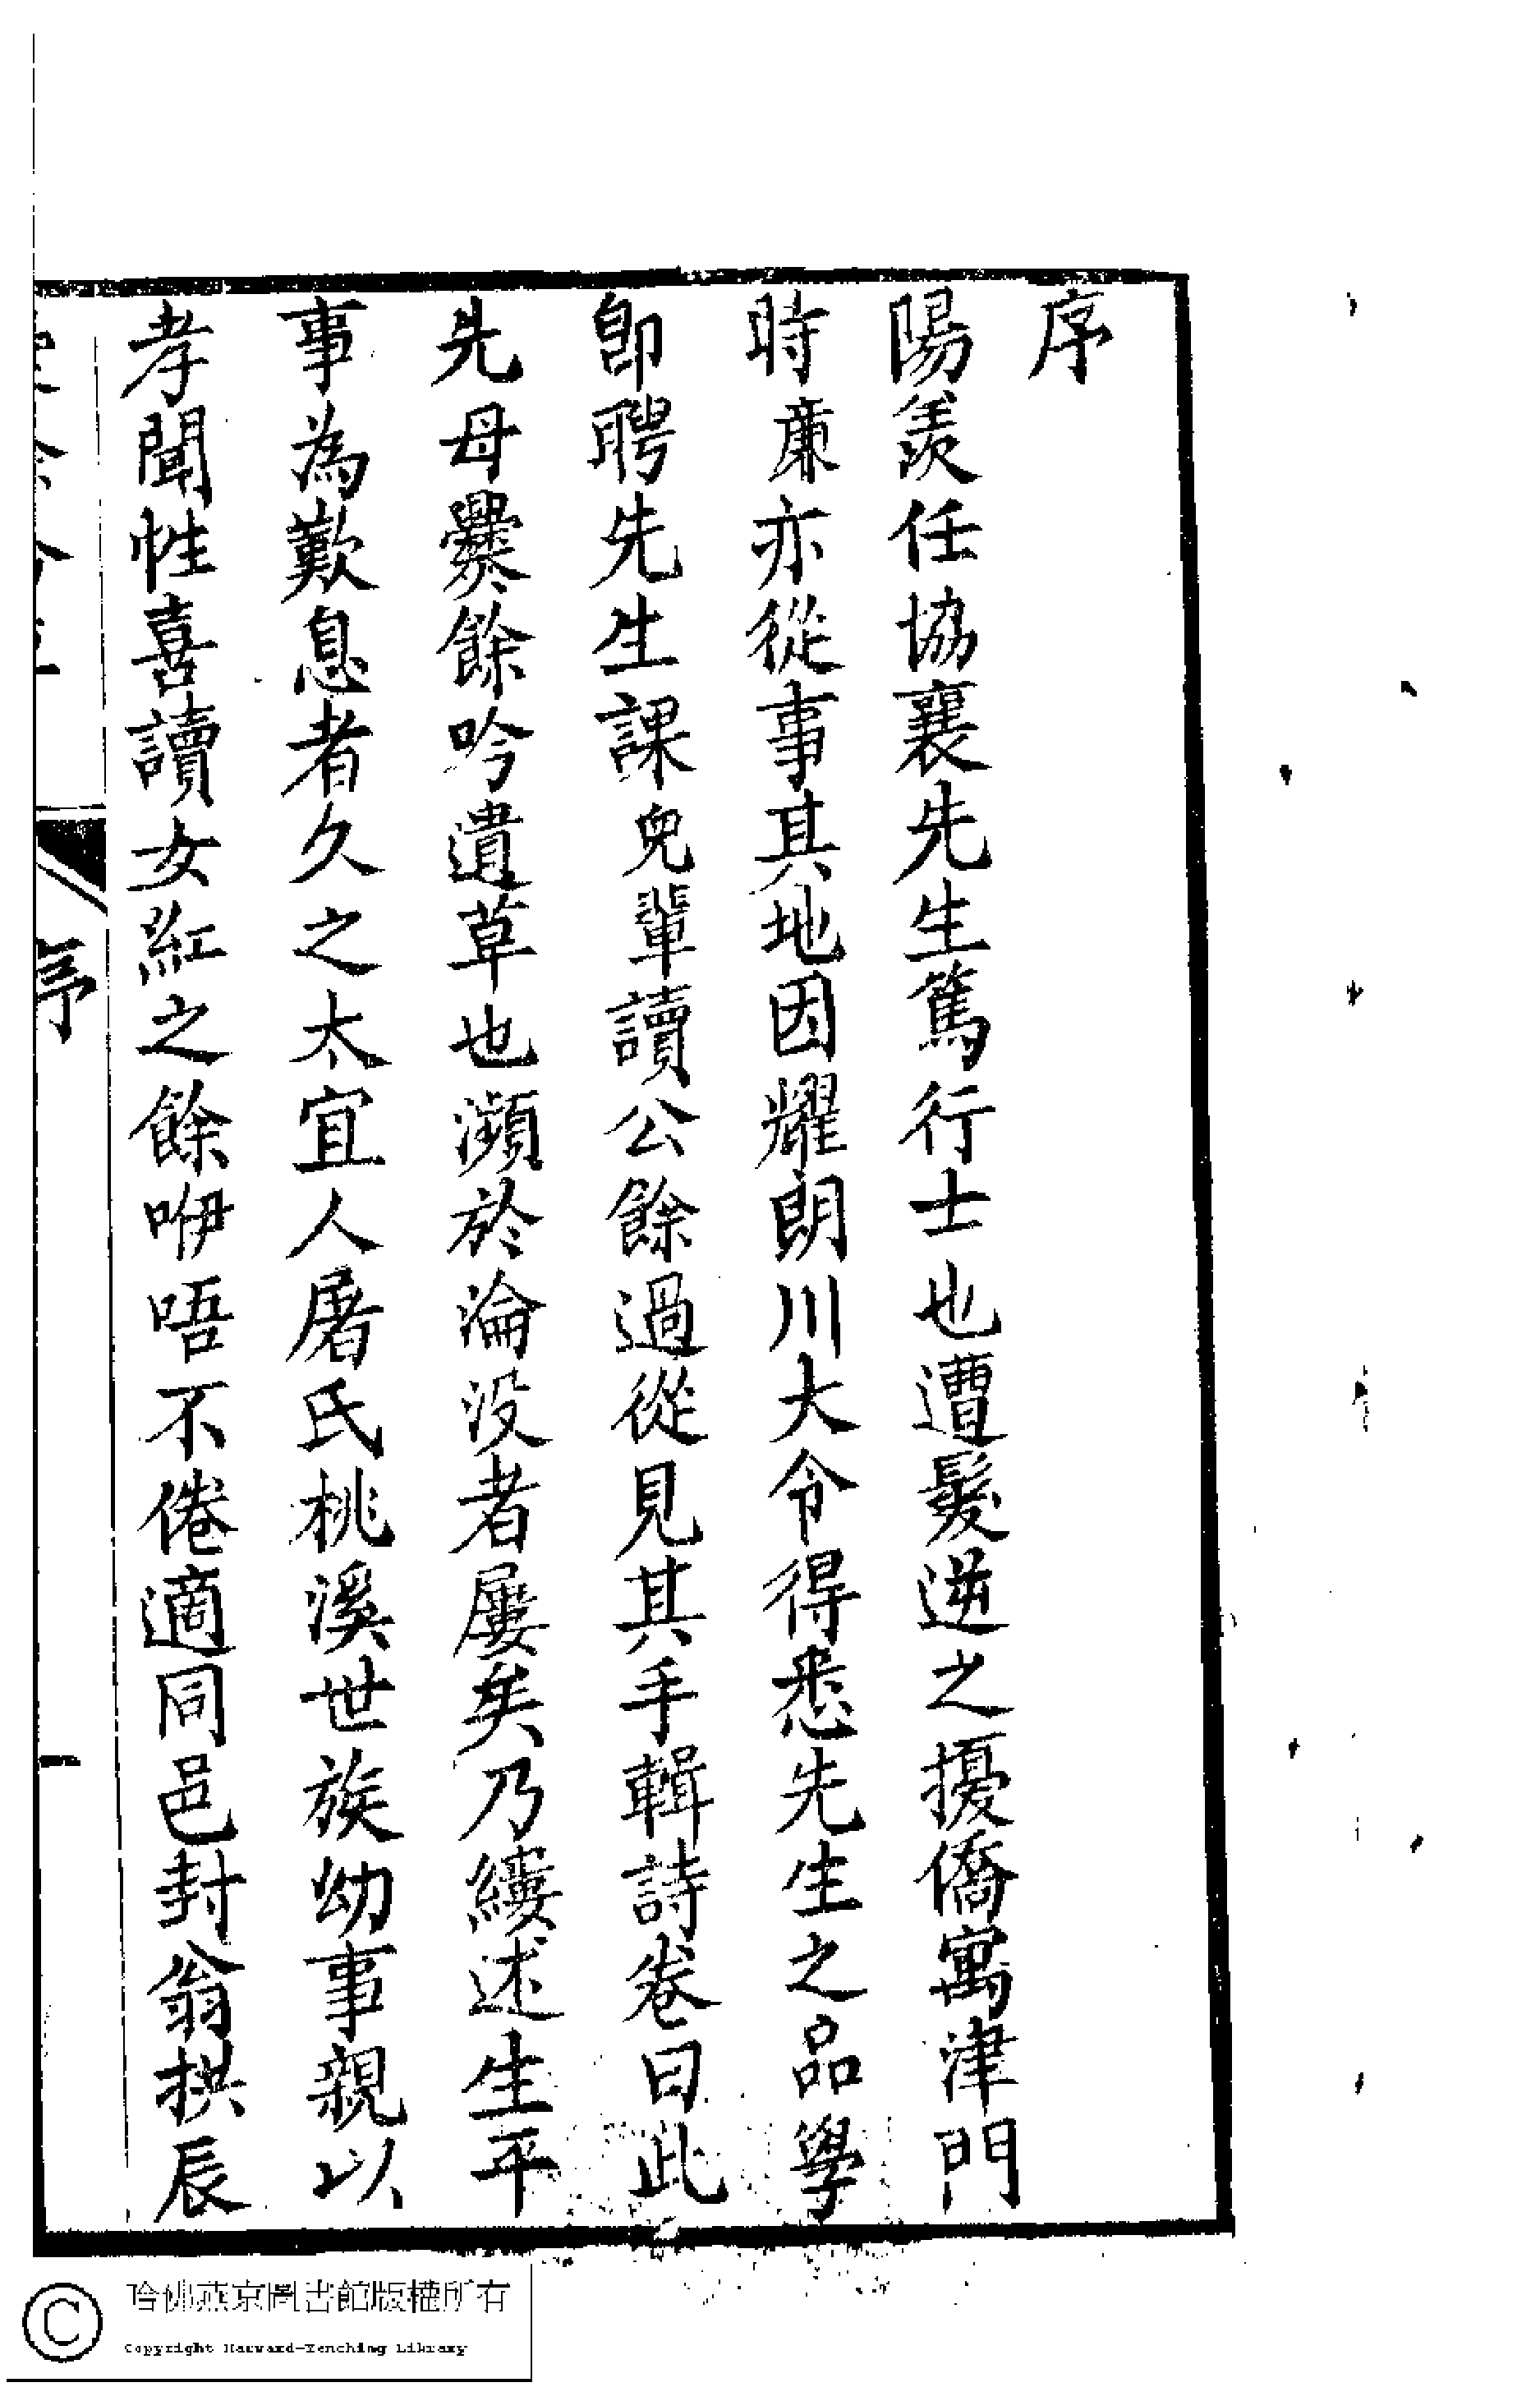 序
陽羨任協襄先生篤行士也遭髮逆之擾僑寓津門
時廉亦從事其地因耀朗川大令得悉先生之品學
卽聘先生課兒輩讀公餘過從見其手輯詩卷曰此
先母爨餘吟遺草也瀕於淪没者屢矣乃縷述生平
事為歎息者久之太宜人屠氏桃溪世族幼事親以
孝聞性喜讀女紅之餘咿唔不倦適同邑封翁拱辰
序
一
哈佛燕京圖書館版權所有
Copyright Harvard-Yenching Library